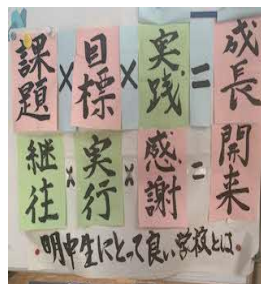 課題×目標×実践=成長
継往×実行×感謝=開来
・明中生にとって良い学校とは・